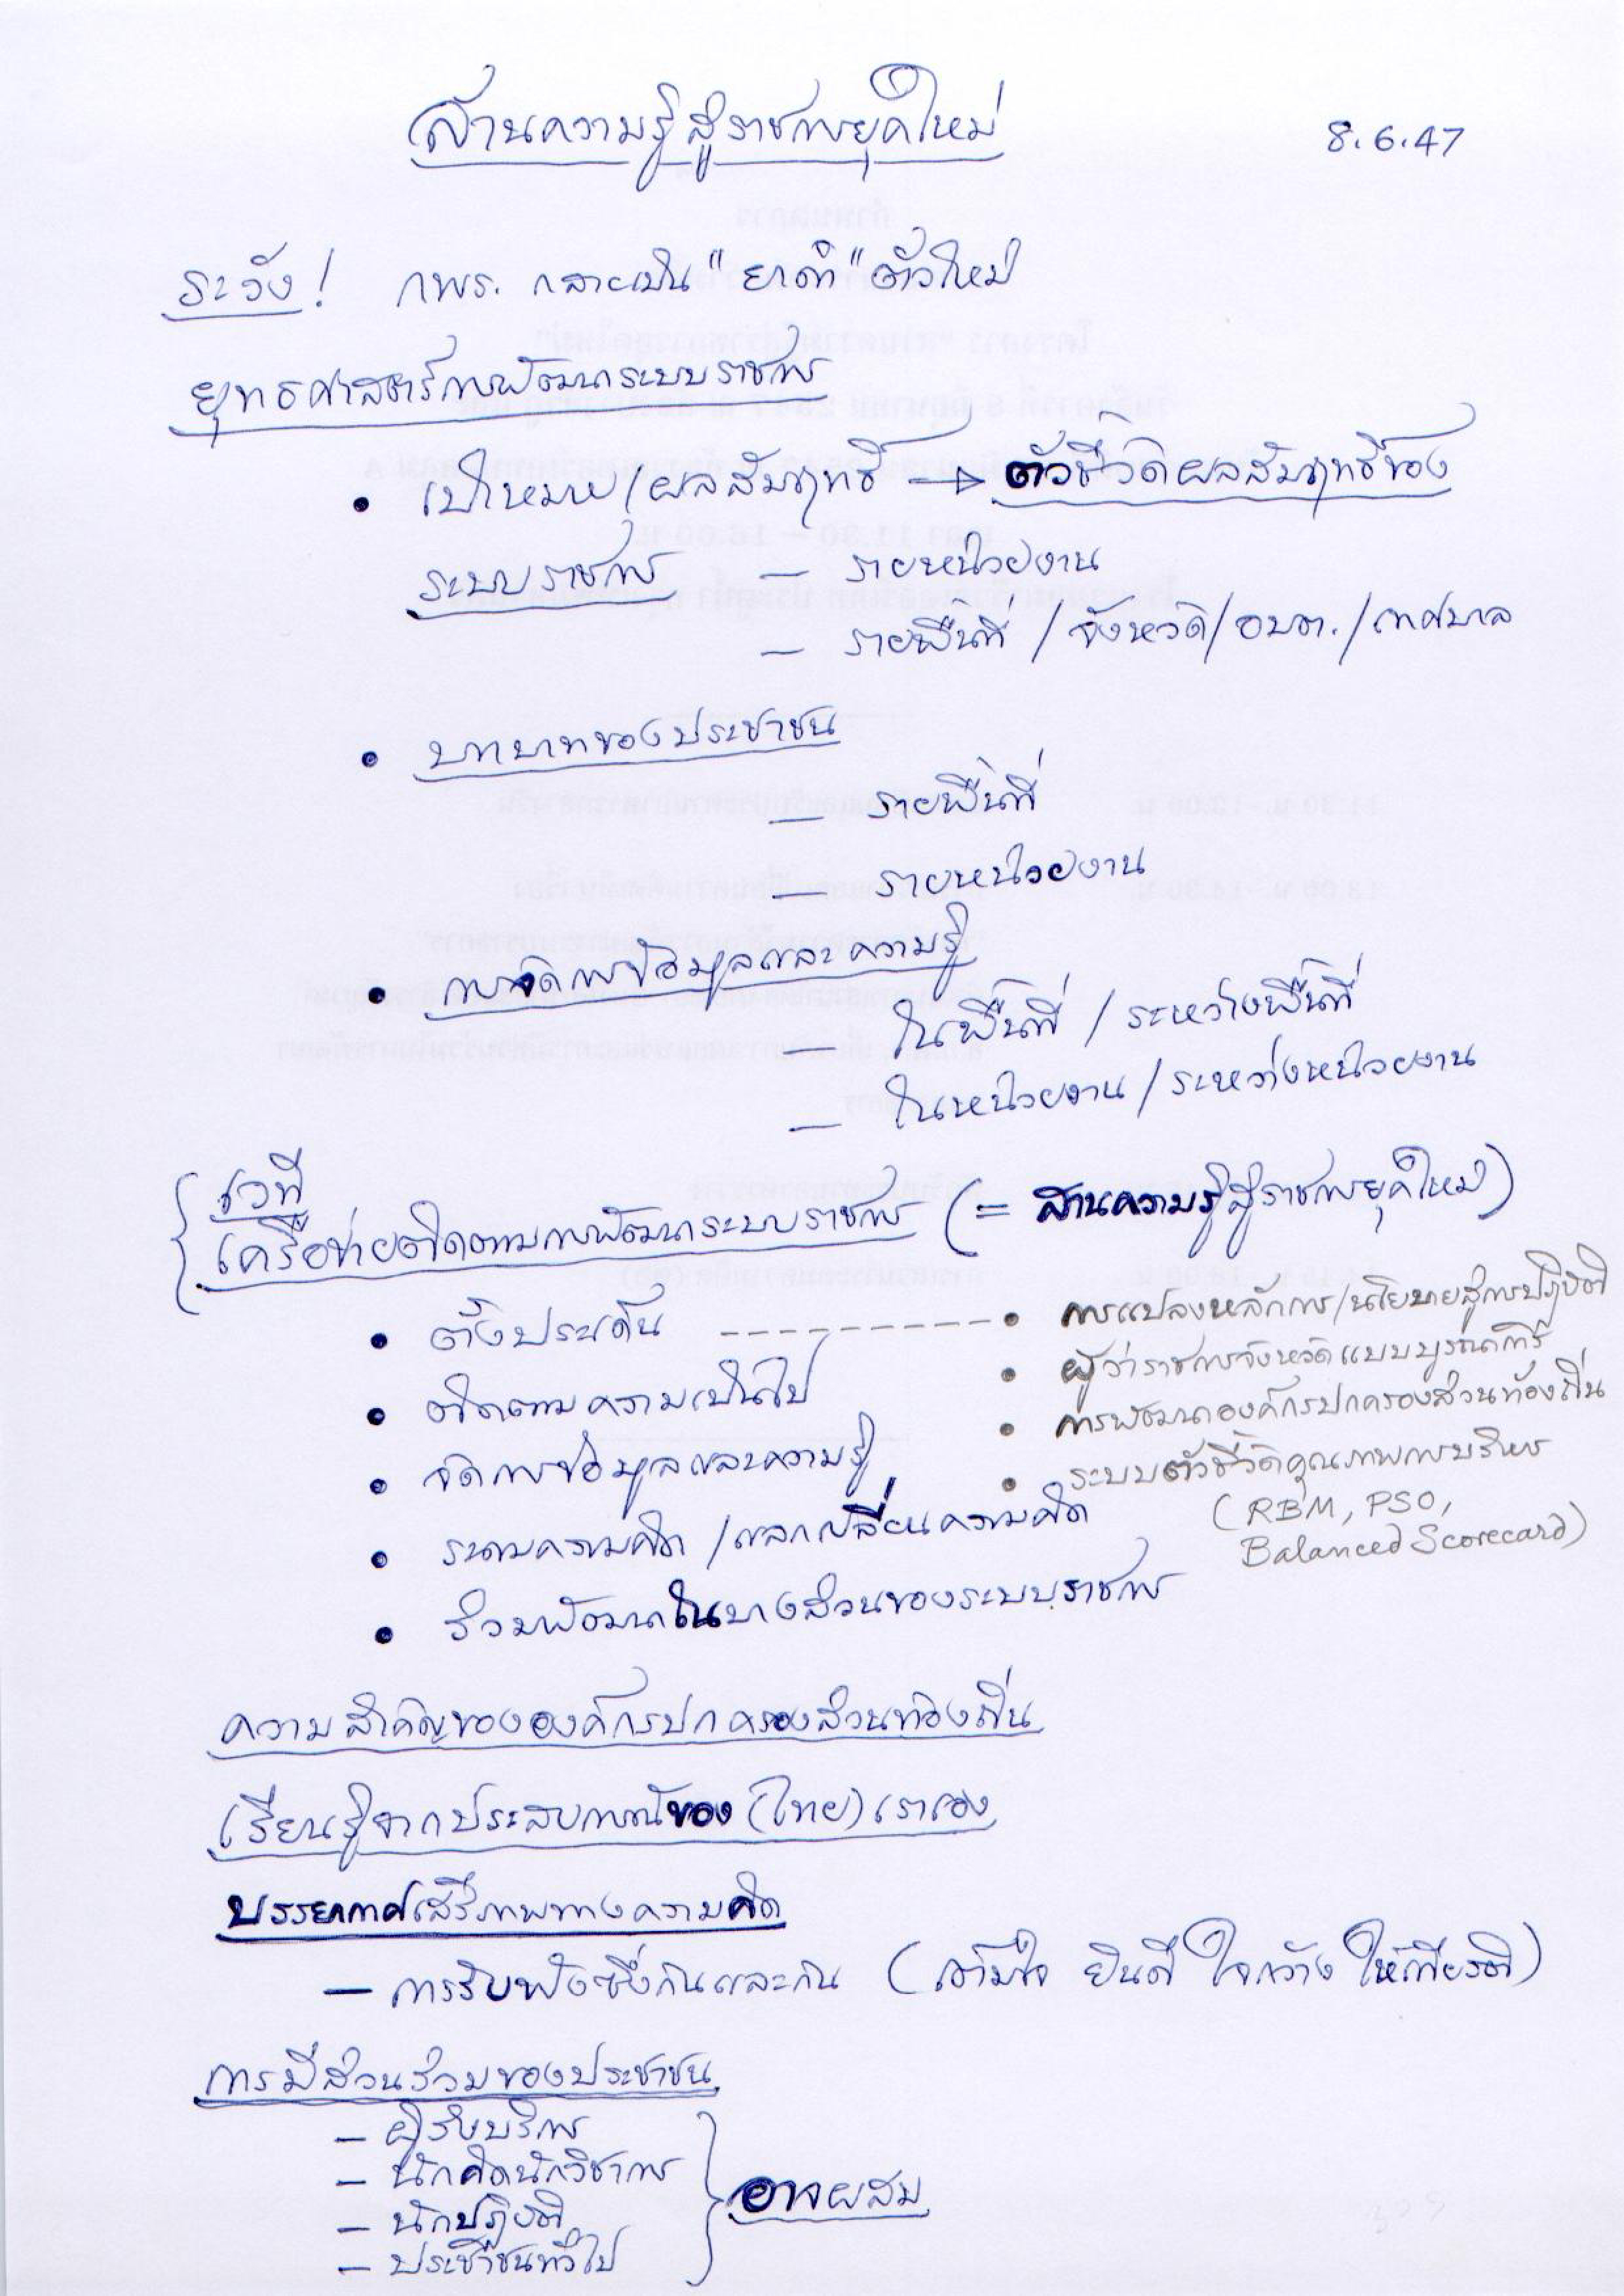 สานความรู้สู่ราชการยุคใหม่
8.6.47
ระวัง! กพร. กลายเป็น "ยาดำ" ตัวใหม่
ยุทธศาสตร์การพัฒนาระบบราชการ
• เป้าหมาย/ผลสัมฤทธิ์ → ตัวชี้วัดผลสัมฤทธิ์ของ
ระบบราชการ – รายหน่วยงาน
– รายพื้นที่ / จังหวัด / อบต. / เทศบาล
• บทบาทของประชาชน
– รายพื้นที่
– รายหน่วยงาน
• การจัดการข้อมูลและความรู้
– ในพื้นที่ / ระหว่างพื้นที่
– ในหน่วยงาน / ระหว่างหน่วยงาน
เวที
เครือข่ายติดตามการพัฒนาระบบราชการ (= สานความรู้สู่ราชการยุคใหม่)
• ตั้งประเด็น ---------- • การแปลงหลักการ/นโยบายสู่การปฏิบัติ
• ผู้ว่าราชการจังหวัดแบบบูรณาการ
• ติดตามความเป็นไป
• การพัฒนาองค์กรปกครองส่วนท้องถิ่น
• จัดการข้อมูลและความรู้
• ระบบตัวชี้วัดคุณภาพการบริหาร
(RBM, PSO,
Balanced Scorecard)
• ระดมความคิด / แลกเปลี่ยนความคิด
• ร่วมพัฒนาในบางส่วนของระบบราชการ
ความสำคัญขององค์กรปกครองส่วนท้องถิ่น
เรียนรู้จากประสบการณ์ของ (ไทย) เราเอง
บรรยากาศเสรีภาพทางความคิด
– การรับฟังซึ่งกันและกัน (เต็มใจ ยินดี ใจกว้าง ให้เกียรติ)
การมีส่วนร่วมของประชาชน
– ผู้รับบริการ
– นักคิดนักวิชาการ
– นักปฏิบัติ
– ประชาชนทั่วไป
อาจผสม